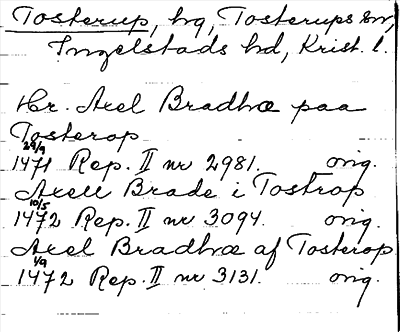 Tosterup, hg, Tosterups sn,
Ingelstads hd, Krist. l.
Hr. Axel Bradhæ paa
Tosterop
29/9
1471 Rep. II nr 2981. orig.
Axell Brade i Tostrop
10/5
1472 Rep. II nr 3094. orig.
Axel Bradhæ af Tosterop
1/9
1472 Rep. II nr 3131. orig.